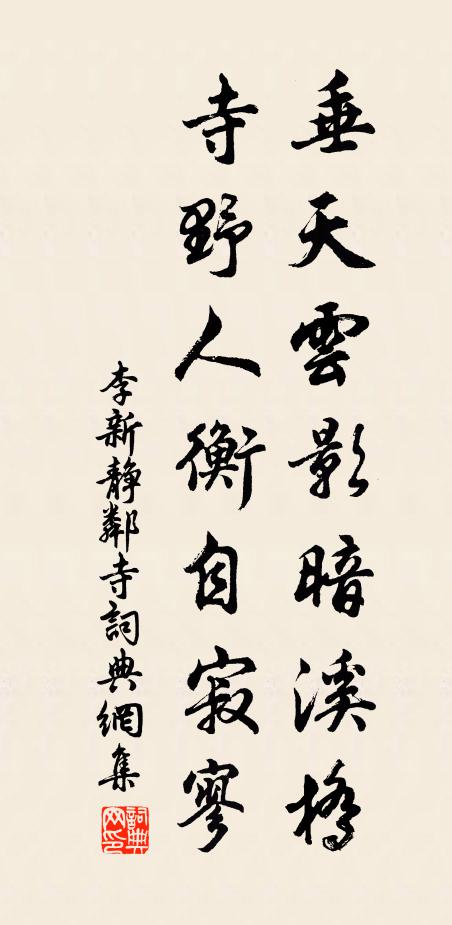 垂天雲影暗溪橋
寺野人衡自寂寥
李新静鄰寺詞典網集
詞典網印